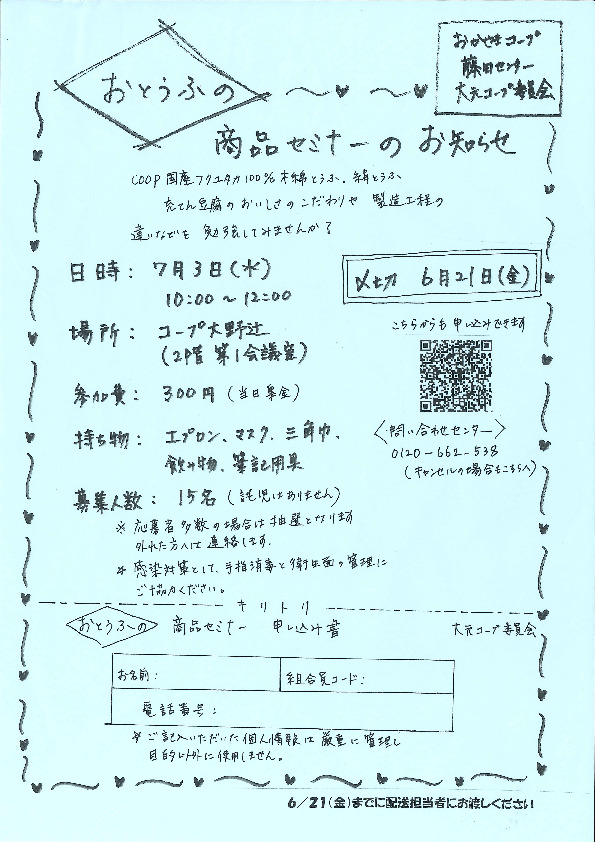 おかやまコープ
藤田センター
大元コープ委員会
おとうふの
商品セミナーの お知らせ
COOP国産フクユタカ100%木綿とうふ、絹とうふ
充てん豆腐のおいしさのこだわりや 製造工程の
違いなどを 勉強してみませんか?
日時: 7月3日(水)
10:00~12:00
〆切 6月21日(金)
場所: コープ大野辻
(2階 第1会議室)
こちらからも 申し込みできます
参加費: 300円(当日集金)
持ち物: エプロン、マスク、三角巾、
飲み物、筆記用具
<問い合わせセンター>
0120-662-538
(キャンセルの場合もこちらへ)
募集人数: 15名(託児はありません)
※ 応募者多数の場合は抽選となります
外れた方へは連絡します。
※ 感染対策として、手指消毒と衛生面の管理に
ご協力ください。
キリトリ
おとうふの 商品セミナー 申し込み書 大元コープ委員会
お名前: 組合員コード:
電話番号:
※ご記入いただいた個人情報は厳重に管理し
目的以外に使用しません。
6/21(金)までに配送担当者にお渡しください